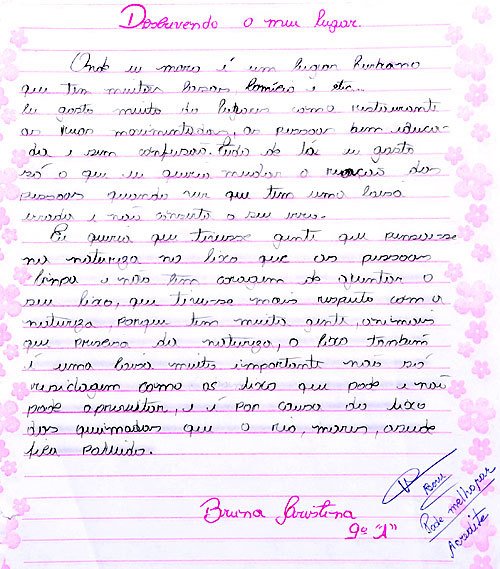 Descrevendo o meu lugar.
Onde eu moro é um lugar humano
que tem muitas casas comércio e etc..
Eu gosto muito do lugares como restaurante
as ruas movimentadas, as pessoas bem educa-
da e sem confusão. Tudo de lá eu gosto
só o que eu queria mudar o das
pessoas quando ver que tem uma coisa
errada e não o seu erro.
Eu queria que tivesse gente que pensa-se
na natureza no lixo que as pessoas
limpa e não tem coragem de ajuntar o
seu lixo, que tive-se mais respeito com a
natureza, porque tem muita gente, animais
que precisa da natureza, o lixo também
é uma coisa muito importante nas só
reciclagem como os lixo que pode e não
pode aproveitar, e é por causa do lixo
das queimadas que o rio, mares, açude
fica poluido.
Bruna Cristina
9º "A"
Bom
Pode melhorar
Acredite